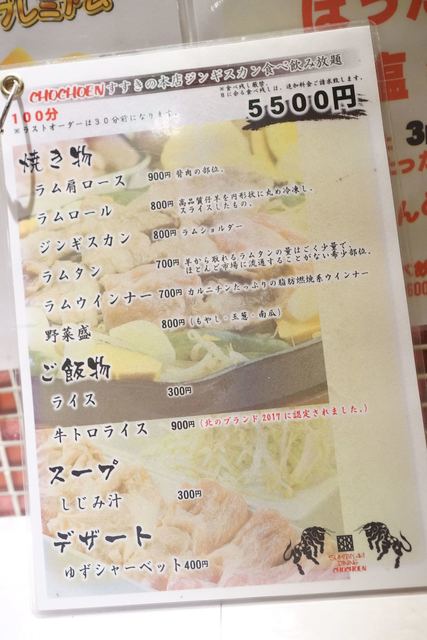 プレミアム
CHOCHOENすすきの本店ジンギスカン食べ飲み放題
※食べ残し厳禁
目に余る食べ残しは、追加料金ご請求致します。
100分
※ラストオーダーは30分前になります。
5500円
焼き物
ラム肩ロース 900円 背肉の部位。
ラムロール 800円 高品質仔羊を円形状に丸め冷凍し、
スライスしたもの。
ジンギスカン 800円 ラムショルダー
ラムタン 700円 羊から取れるラムタンの量はごく少量で、
ほとんど市場に流通することがない希少部位。
ラムウインナー 700円 カルニチンたっぷりの脂肪燃焼系ウインナー
野菜盛 800円 (もやし・玉葱・南瓜)
ご飯物
ライス 300円
牛トロライス 900円 (北のブランド2017に認定されました。)
スープ
しじみ汁 300円
デザート
ゆずシャーベット 400円
DINING
CHOCHOEN
塩